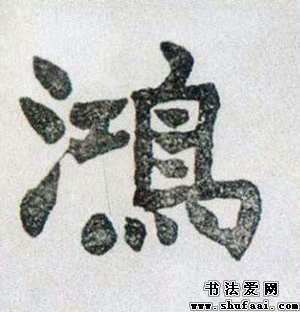 鴻
书法爱网
www.shufaai.com